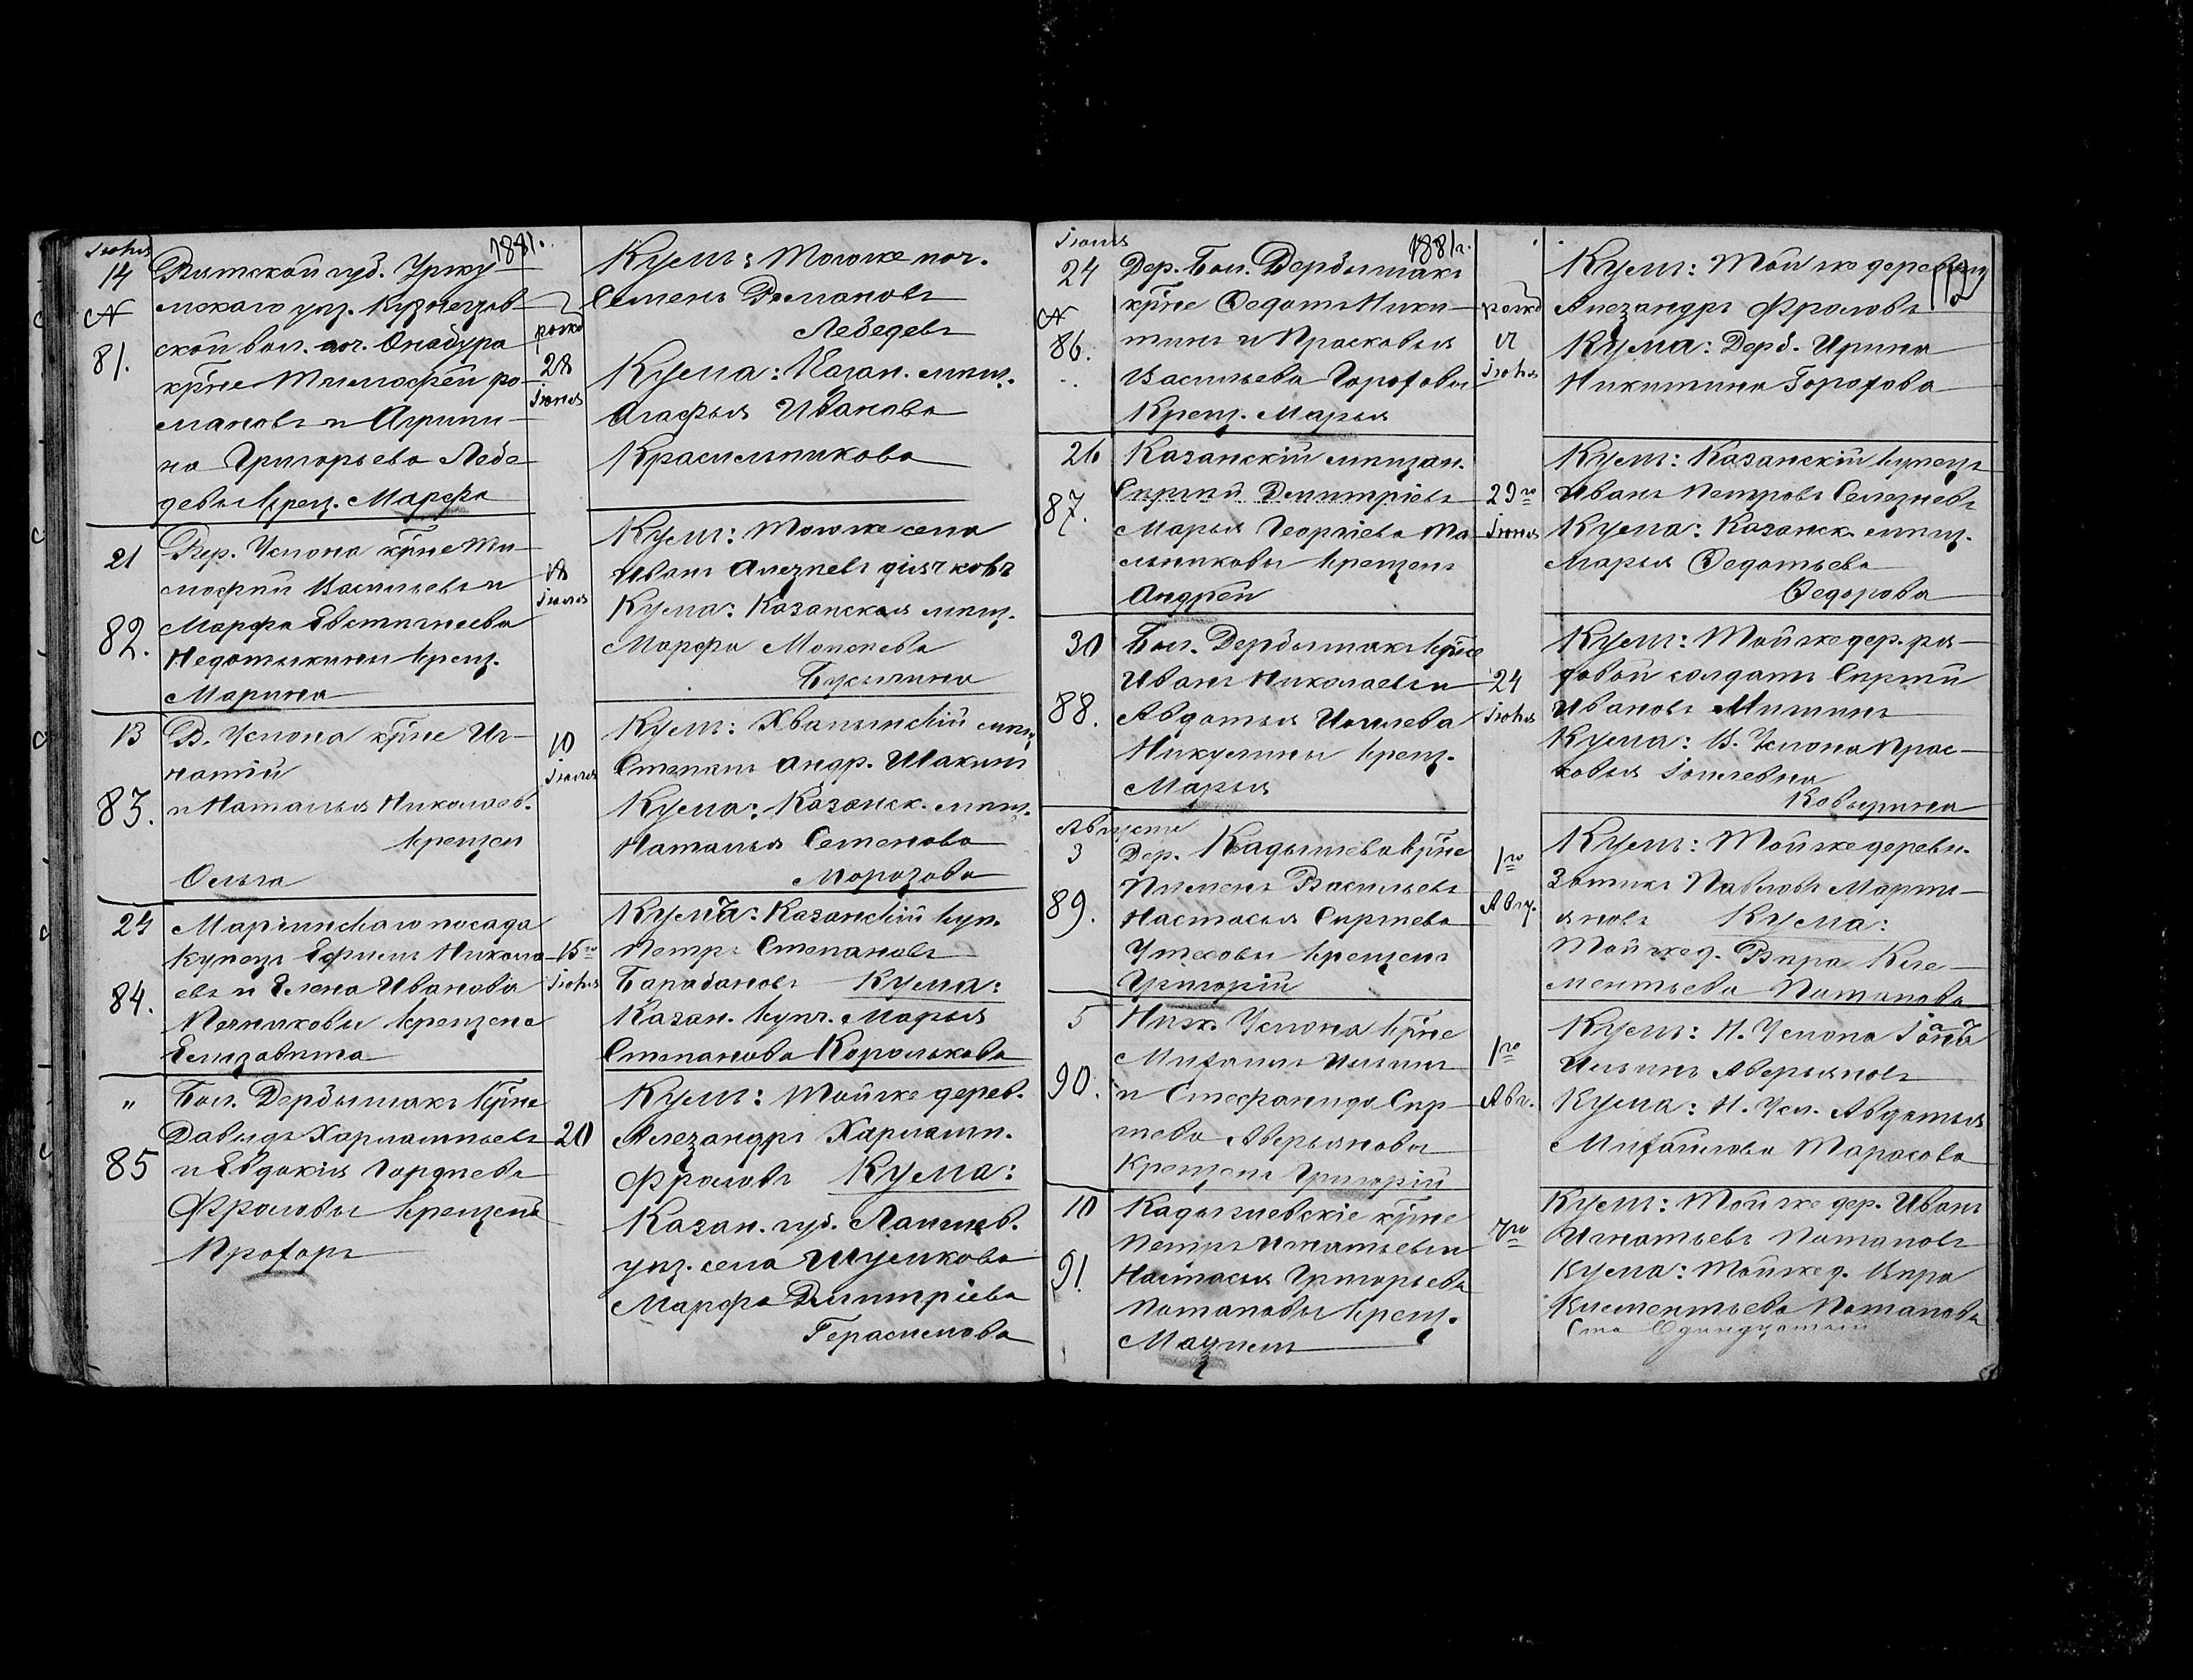 1881.
Іюня
14
№
81.
Вятской губ. Уржу
мскаго уѣз. Кузнецов
ской вол. поч. Онабура
кр̃не Тимофей Ро
мановъ и Агрипи
на Григорьева Лебе
девы крещ. Марфа
рожд
28
Іюня
Кумъ: Тогоже поч.
Семенъ Романовъ
Лебедевъ
Кума: Казан. мѣщ.
Агафья Иванова
Красильникова
21
82.
Вер. Услона кр̃не Ти
мофей Васильевъ и
Марфа Евстигнеева
Недотыкины крещ.
Марина
18
Іюля
Кумъ: Тогоже села
Иванъ Алезневъ дьячковъ
Кума: Казанская мѣщ.
Марфа Мокеева
Бусыгина
13
83.
В. Услона кр̃не Иг
натій
и Наталья Николаев.
крещен
Ольга
10
Іюля
Кумъ: Хвалынскій мѣщ.
Степанъ Андр. Шакинъ
Кума: Казанск. мѣщ.
Наталья Семенова
Морозова
24
84.
Маріинскаго посада
купецъ Ефимъ Никола
евъ и Елена Иванова
Печниковы крещена
Елизавета
15го
Іюля
Кумъ: Казанскій куп.
Петръ Степановъ
Барабановъ Кума:
Казан. купч. Марья
Степанова Королькова
"
85
Бол. Дербышакъ кр̃не
Давидъ Харлампьевъ
и Евдокія Гордѣева
Фроловы крещенъ
Прохоръ
20
Кумъ: Тойже дерев.
Александръ Харламп.
Фроловъ Кума:
Казан. губ. Лаишев.
уѣз. села Шумкова
Марфа Димитріева
Герасимова
1881г.
Іюля
24
№
86.
Дер. Бол. Дербышакъ
кр̃не Федотъ Ники
тинъ и Прасковья
Васильева Гороховы
Крещ. Марья
рожд
21
Іюля
Кумъ: Той же деревни
Александръ Фроловъ
Кума: Дерб. Ирина
Никитина Горохова
26
87.
Казанскій мѣщан.
Сергѣй Димитріевъ
Марья Георгіева Ма
льниковы крещенъ
Андрей
29го
Іюня
Кумъ: Казанскій купецъ
Иванъ Петровъ Селезневъ
Кума: Казанск. мѣщ.
Марья Федотьева
Федорова
30
88.
Бол. Дербышакъ кр̃не
Иванъ Николаевъ и
Авдотья Иовлева
Никулины крещ.
Марья
24
Іюля
Кумъ: Тойже дер. ря
довой солдатъ Сергѣй
Ивановъ Мишинъ
Кума: В. Услона Прас
ковья Іовлевна
Ковырзина
Августа
3
89.
Дер. Кадышева кр̃не
Пименъ Васильевъ
Настасья Сергѣева
Утеховы крещенъ
Григорій
1го
Авгу.
Кумъ: Тойже деревн.
Зотикъ Павловъ Марти
яновъ Кума:
Тойже д. Вѣра Кле
ментьева Потапова
5
90.
Ниж. Услона кр̃не
Михаилъ Ильинъ
и Стефанида Сер
гѣева Аверьяновы
Крещенъ Григорій
1го
Авг.
Кумъ: Н. Услона
Ильинъ Аверьяновъ
Кума: Н. Усл. Авдотья
Михайлова Тарасова
10
91.
Кадышевскіе кр̃не
Петръ Игнатьевъ и
Настасья Григорьева
Потаповы крещ.
7го
Кумъ: Той же дер. Иванъ
Игнатьевъ Потаповъ
Кума: Тойже д. Вѣра
Клементьева Потапова
Сто Одиндцатый